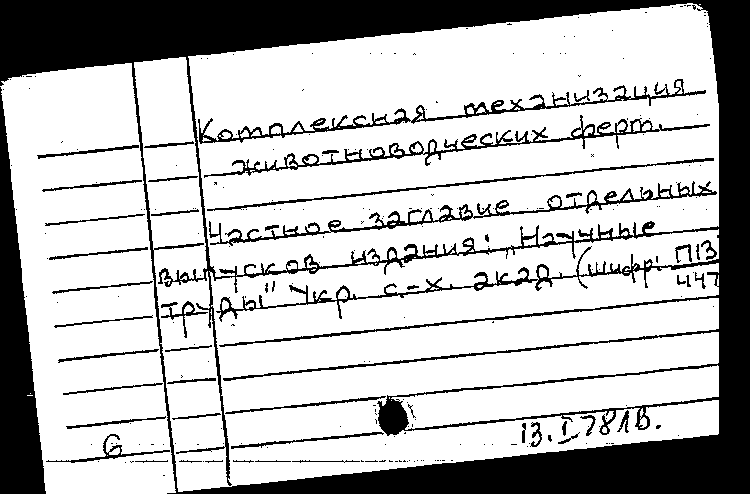 Комплексная механизация
животноводческих ферм.
Частное заглавие отдельных
выпусков издания: „Научные
труды" Укр. с.-х. акад. (шифр: П13/447
G
13.I.78